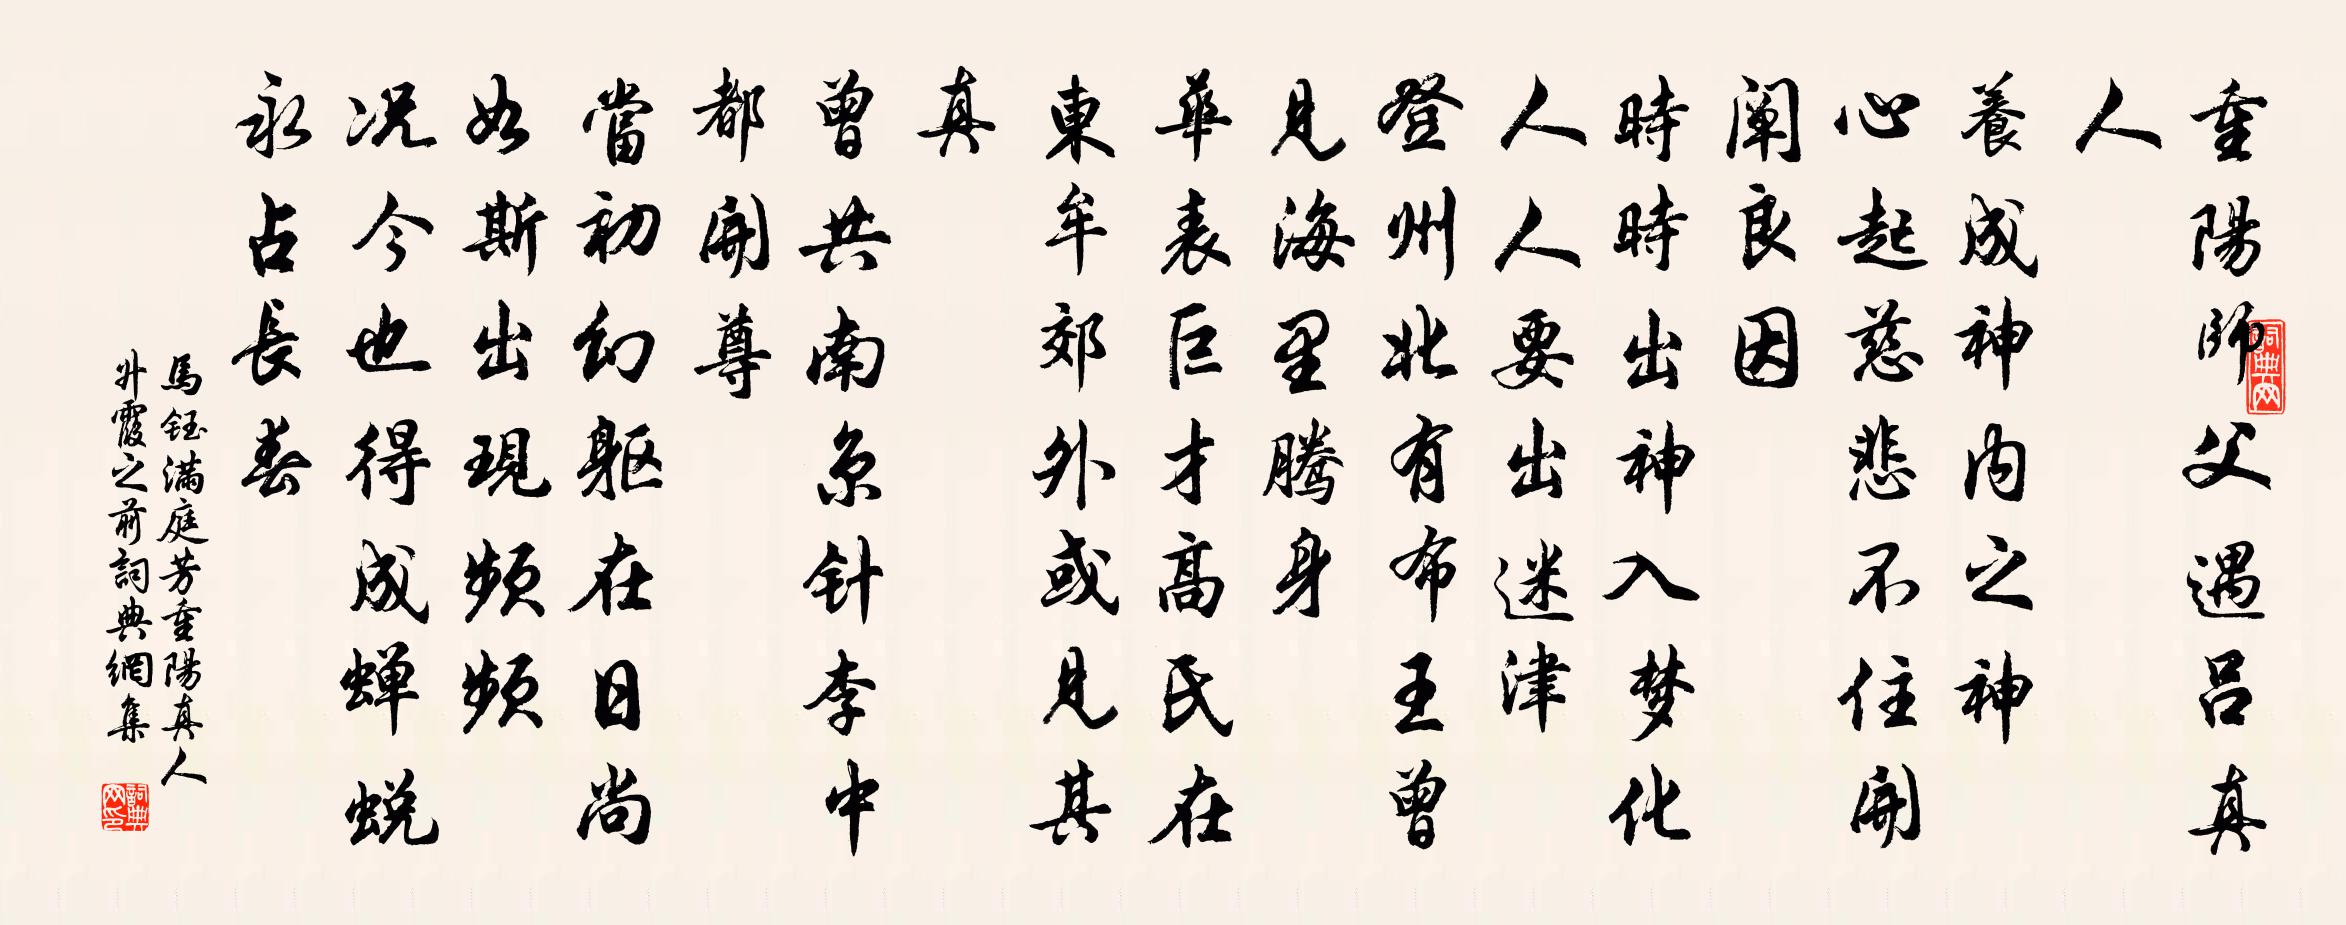 重陽師父遇呂真
人
養成神内之神
心起慈悲不住開
闡良因
時時出神入梦化
人人要出迷津
登州北有布王曾
見海里腾身
華表巨才高氏在
東牟郊外或見其
真
曾共南京针李中
都開尊
當初幻躯在日尚
如斯出現頻頻
况今也得成蝉蜕
永占長春
馬钰満庭芳重陽真人
升霞之前詞典網集
詞典网
詞典网印